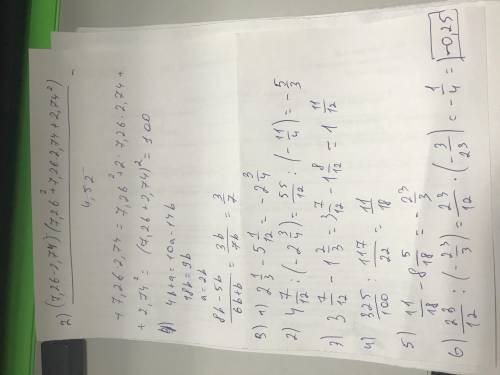 2) (7,26-2,74)(7,26²+7,26·2,74+2,74²) -
4,52
+ 7,26·2,74 = 7,26²+2·7,26·2,74+
+ 2,74² = (7,26+2,74)² = 100
4b+a=10a-14b
18b=9b
a=2b
8b-5b 3b/(6b+b) 7b = 3/7
3) 1) 2 1/3 - 5 1/12 = -2 3/4
2) 4 7/12 : (-2 3/4) = 55/12 : (-11/4) = -5/3
3 7/12 - 1 2/3 = 3 7/12 - 1 8/12 = 1 11/12
4) 325/100 : 117/22 = 11/18
5) 11/18 - 8 5/18 = -23/3
6) 23/12 : (-23/3) = 23/12 · (-3/23) = -1/4 = -0,25